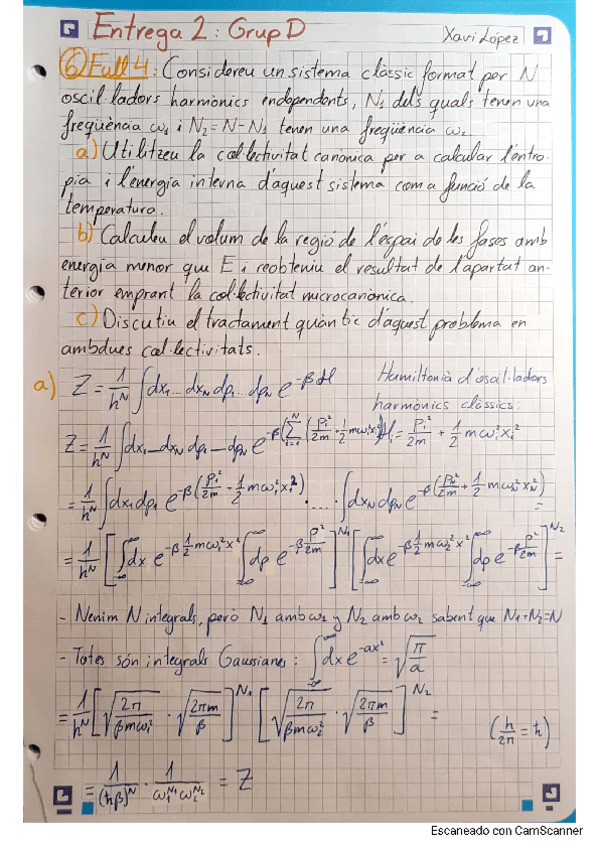 Entrega 2: Grup D
Xavi López
6 Full 4: Considereu un sistema clàssic format per N
oscil·ladors harmònics independents, N₁ dels quals tenen una
freqüència ω₁ i N₂=N-N₁ tenen una freqüència ω₂.
a) Utilitzeu la col·lectivitat canònica per a calcular l'entro-
pia i l'energia interna d'aquest sistema com a funció de la
temperatura.
b) Calculeu el volum de la regió de l'espai de les fases amb
energia menor que E i reobteniu el resultat de l'apartat an-
terior emprant la col·lectivitat microcanònica.
c) Discutiu el tractament quàntic d'aquest problema en
ambdues col·lectivitats.
a) Z = 1/h^N ∫dx₁...dx_N dp₁...dp_N e^{-βH}
Hamiltonià d'oscil·ladors
harmònics clàssics:
Z = 1/h^N ∫dx₁...dx_N dp₁...dp_N e^{-β(∑_{i=1}^{N}(p_i²/2m + 1/2 mω_i²x_i²))}
H_i = p_i²/2m + 1/2 mω_i²x_i²
= 1/h^N ∫dx₁dp₁ e^{-β(p₁²/2m + 1/2 mω₁²x₁²)} · ... · ∫dx_N dp_N e^{-β(p_N²/2m + 1/2 mω_N²x_N²)} =
= 1/h^N [∫_{-∞}^{∞} dx e^{-β 1/2 mω₁²x²} ∫_{-∞}^{∞} dp e^{-β p²/2m}]^{N₁} [∫_{-∞}^{∞} dx e^{-β 1/2 mω₂²x²} ∫_{-∞}^{∞} dp e^{-β p²/2m}]^{N₂} =
- Tenim N integrals, però N₁ amb ω₁ y N₂ amb ω₂ sabent que N₁+N₂=N
- Totes són integrals Gaussianes: ∫_{-∞}^{∞} dx e^{-ax²} = √(π/a)
= 1/h^N [√(2π/βmω₁²) · √(2πm/β)]^{N₁} [√(2π/βmω₂²) · √(2πm/β)]^{N₂} =
(h/2π = ħ)
= 1/(ħβ)^N · 1/ω₁^{N₁}ω₂^{N₂} = Z
Escaneado con CamScanner